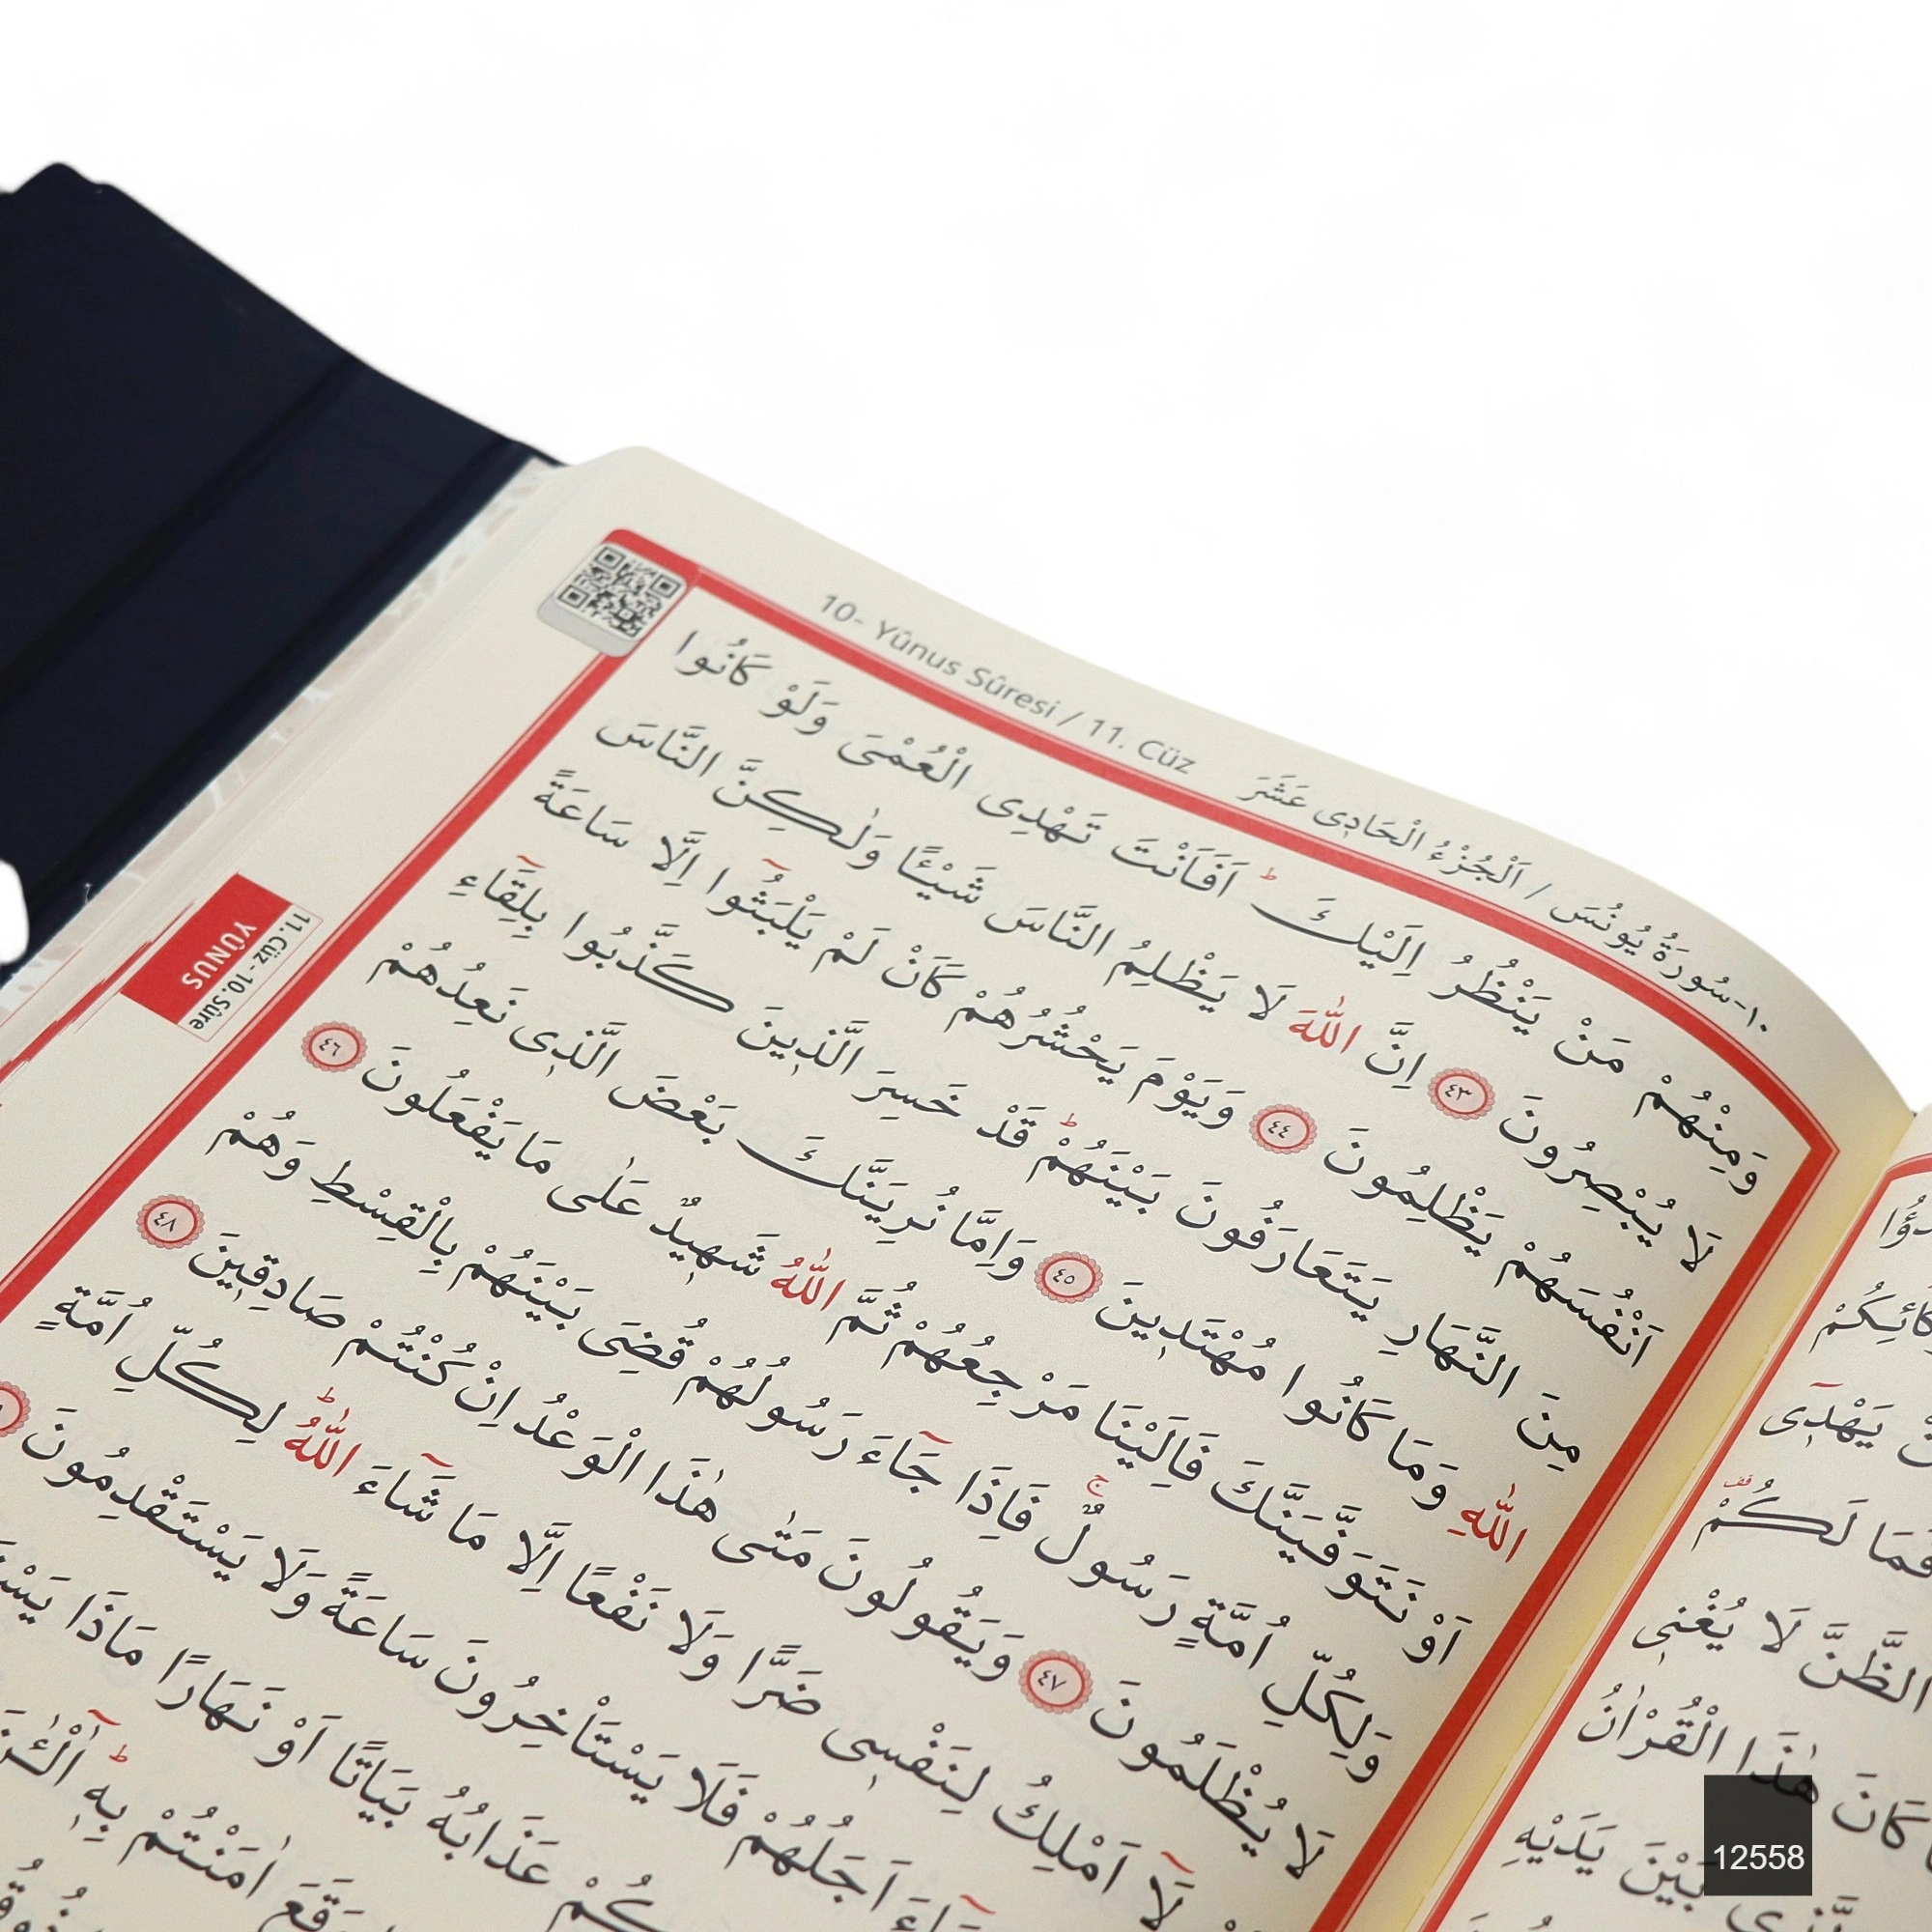 10- Yûnus Sûresi / 11. Cüz
١٠-سُورَةُ يُونُسَ / اَلْجُزْءُ الْحَادِى عَشَرَ
وَمِنْهُمْ مَنْ يَنْظُرُ اِلَيْكَ ۜ اَفَاَنْتَ تَهْدِى الْعُمْىَ وَلَوْ كَانُوا
لَا يُبْصِرُونَ ﴿٤٣﴾ اِنَّ اللّٰهَ لَا يَظْلِمُ النَّاسَ شَيْـًٔا وَلٰكِنَّ النَّاسَ
اَنْفُسَهُمْ يَظْلِمُونَ ﴿٤٤﴾ وَيَوْمَ يَحْشُرُهُمْ كَاَنْ لَمْ يَلْبَثُٓوا اِلَّا سَاعَةً
مِنَ النَّهَارِ يَتَعَارَفُونَ بَيْنَهُمْؕ قَدْ خَسِرَ الَّذ۪ينَ كَذَّبُوا بِلِقَٓاءِ
اللّٰهِ وَمَا كَانُوا مُهْتَد۪ينَ ﴿٤٥﴾ وَاِمَّا نُرِيَنَّكَ بَعْضَ الَّذ۪ى نَعِدُهُمْ
اَوْ نَتَوَفَّيَنَّكَ فَاِلَيْنَا مَرْجِعُهُمْ ثُمَّ اللّٰهُ شَه۪يدٌ عَلٰى مَا يَفْعَلُونَ ﴿٤٦﴾
وَلِكُلِّ اُمَّةٍ رَسُولٌۚ فَاِذَا جَٓاءَ رَسُولُهُمْ قُضِىَ بَيْنَهُمْ بِالْقِسْطِ وَهُمْ
لَا يُظْلَمُونَ ﴿٤٧﴾ وَيَقُولُونَ مَتٰى هٰذَا الْوَعْدُ اِنْ كُنْتُمْ صَادِق۪ينَ ﴿٤٨﴾
لَٓا اَمْلِكُ لِنَفْس۪ى ضَرًّا وَلَا نَفْعًا اِلَّا مَا شَٓاءَ اللّٰهُؕ لِكُلِّ اُمَّةٍ
اَجَلُهُمْ فَلَا يَسْتَأْخِرُونَ سَاعَةً وَلَا يَسْتَقْدِمُونَ
عَذَابُهُ بَيَاتًا اَوْ نَهَارًا مَاذَا
وَقَعَ اٰمَنْتُمْ بِه۪ؕ
11. Cüz - 10. Sûre
YÛNUS
يَهْدّ۪ٓى
فَمَا لَكُمْ
الظَّنَّ لَا يُغْن۪ى
كَانَ هٰذَا الْقُرْاٰنُ
بَيْنَ يَدَيْهِ
12558